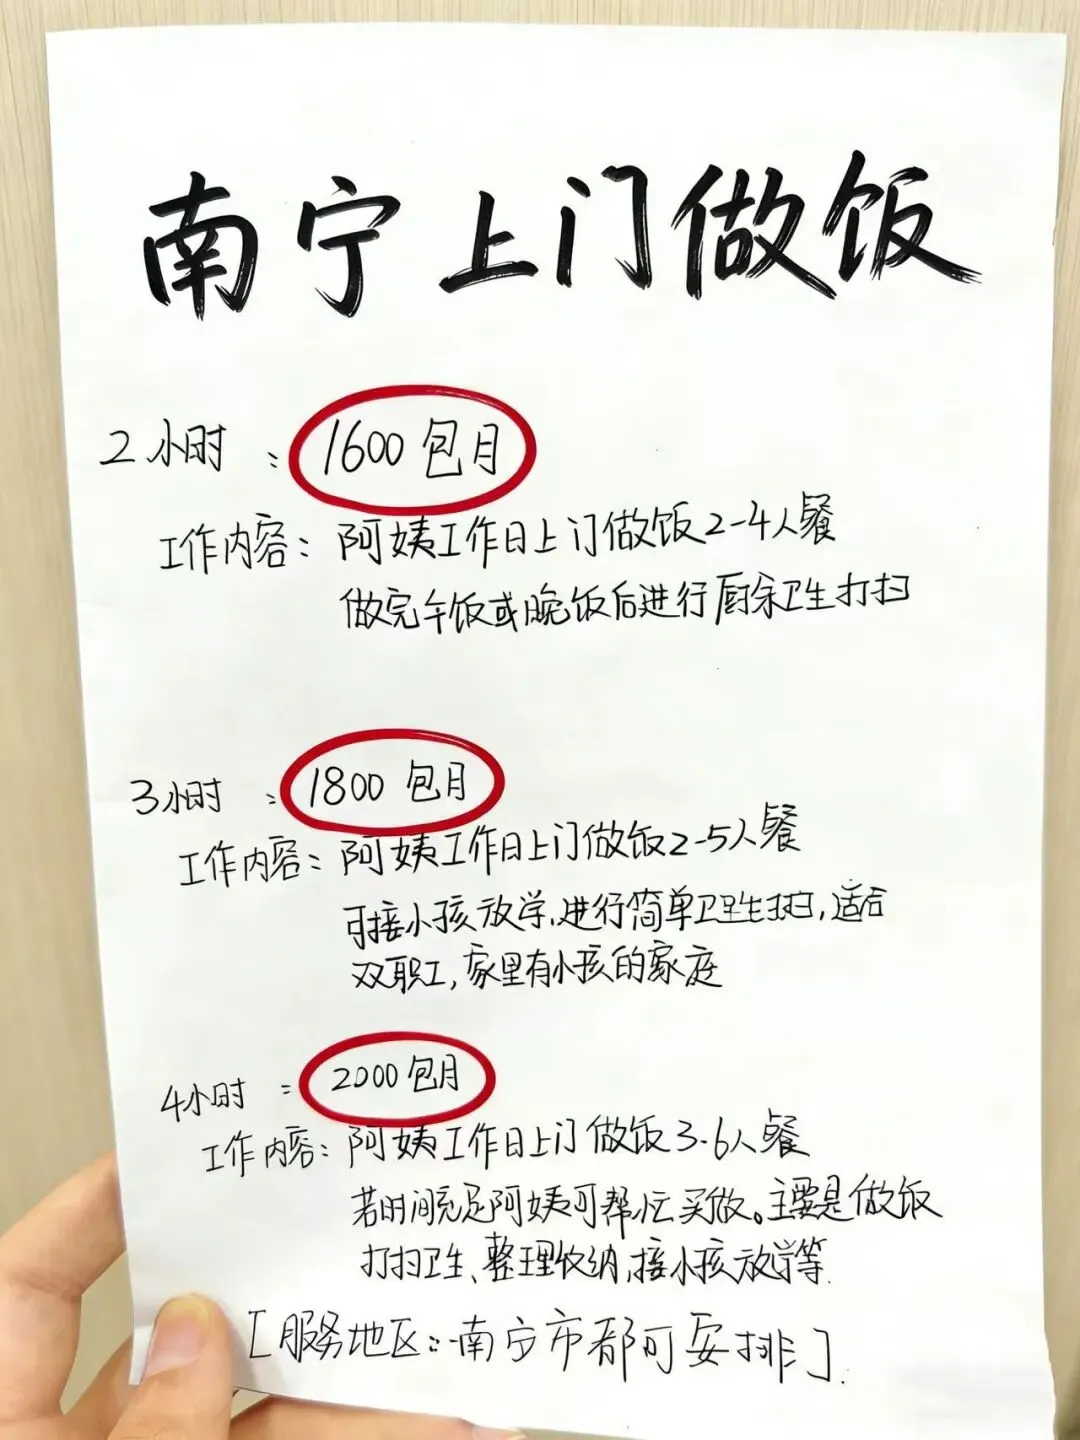 南宁上门做饭
2小时：1600包月
工作内容：阿姨工作日上门做饭2-4人餐
做完午饭或晚饭后进行厨余卫生打扫
3小时：1800包月
工作内容：阿姨工作日上门做饭2-5人餐
可接小孩放学、进行简单卫生打扫，适合
双职工，家里有小孩的家庭
4小时：2000包月
工作内容：阿姨工作日上门做饭3-6人餐
若时间充足阿姨可帮忙买做。主要是做饭
打扫卫生、整理收纳，接小孩放学等.
[服务地区：南宁市都可安排].